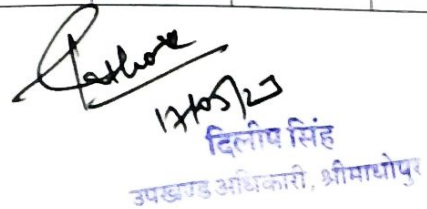 Rathore
17/05/23
दिलीप सिंह
उपखण्ड अधिकारी, श्रीमाधोपुर